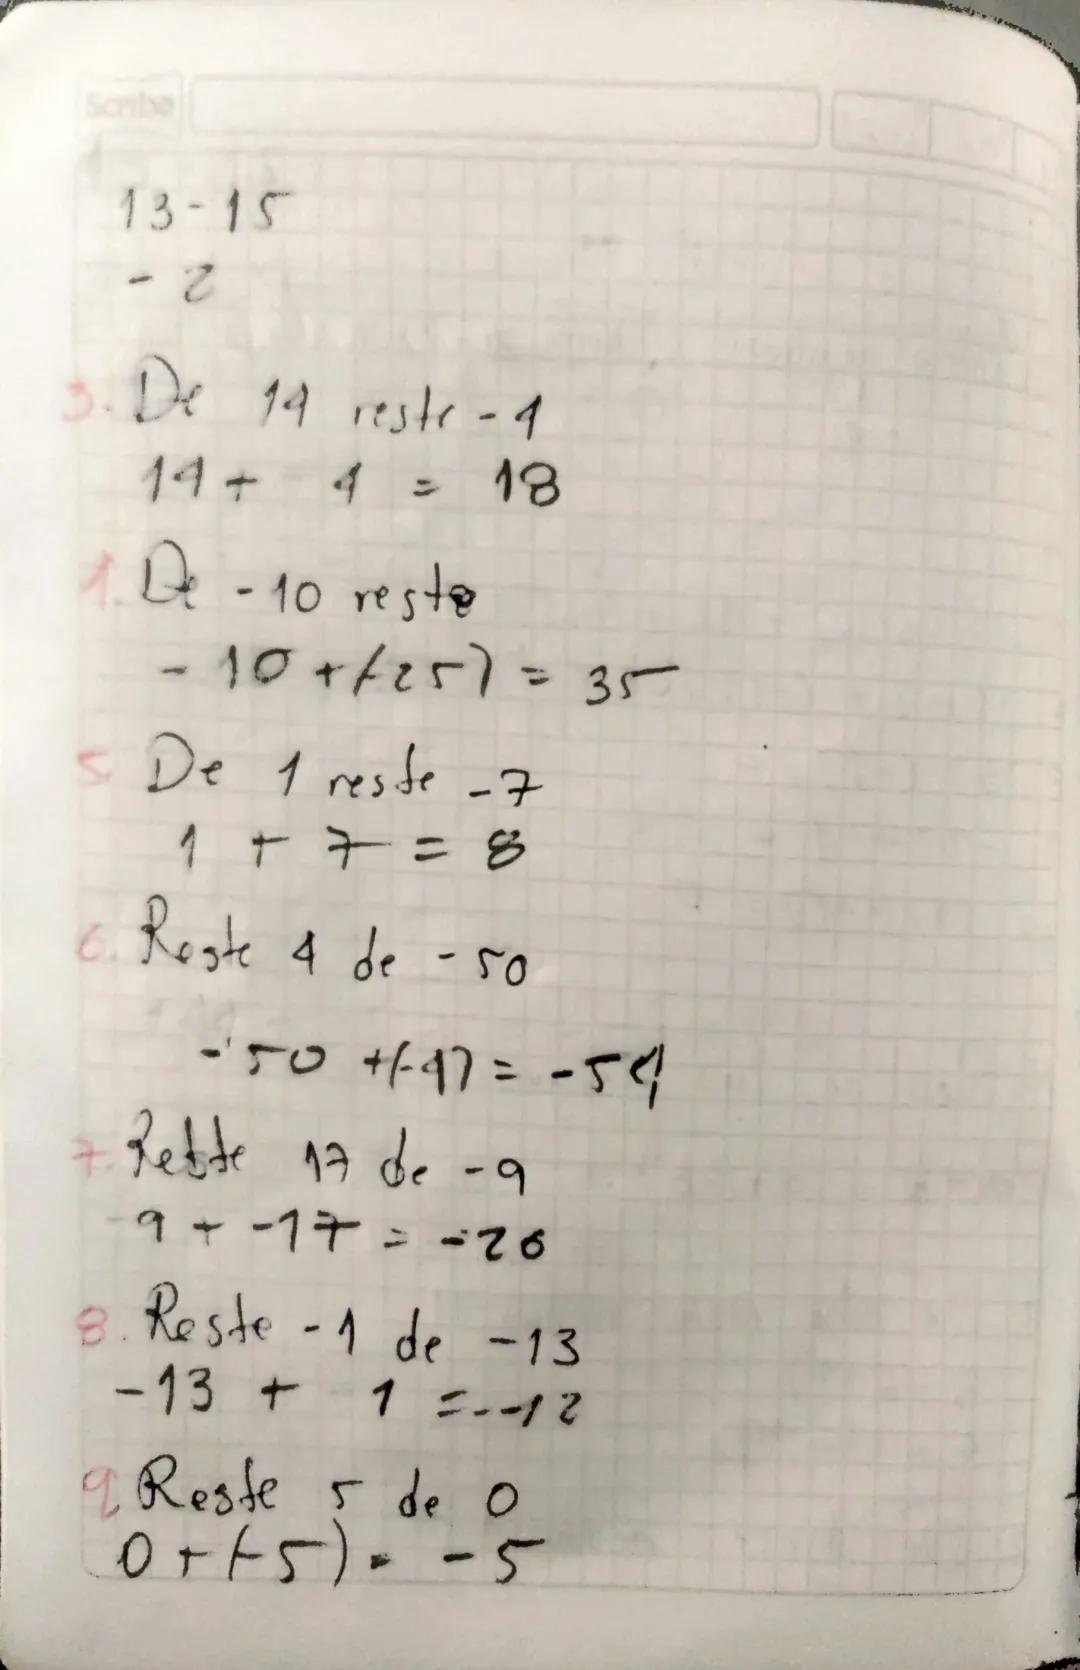 Scribe
13-15
-2
3. De 14 reste -4
14 + 4 = 18
4. De -10 reste
-10 +(-25) = 35
5. De 1 reste -7
1 + 7 = 8
6. Reste 4 de -50
-50 +(-4) = -54
7. Rebte 17 de -9
-9 + -17 = -26
8. Reste -1 de -13
-13 + 1 = --12
9. Reste 5 de 0
0 + (-5) = -5